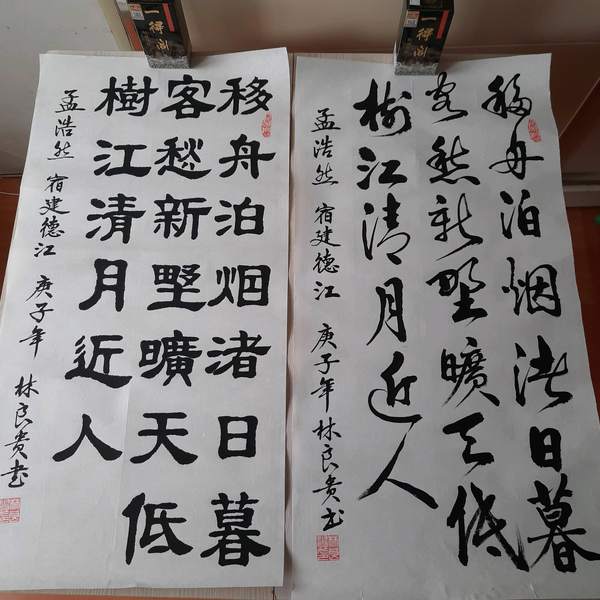 移舟泊烟渚日暮
客愁新墅曠天低
樹江清月近人
孟浩然 宿建德江 庚子年 林良贵书
移舟泊烟渚日暮
客愁新墅曠天低
樹江清月近人
孟浩然 宿建德江 庚子年 林良贵书
一得阁
一得阁